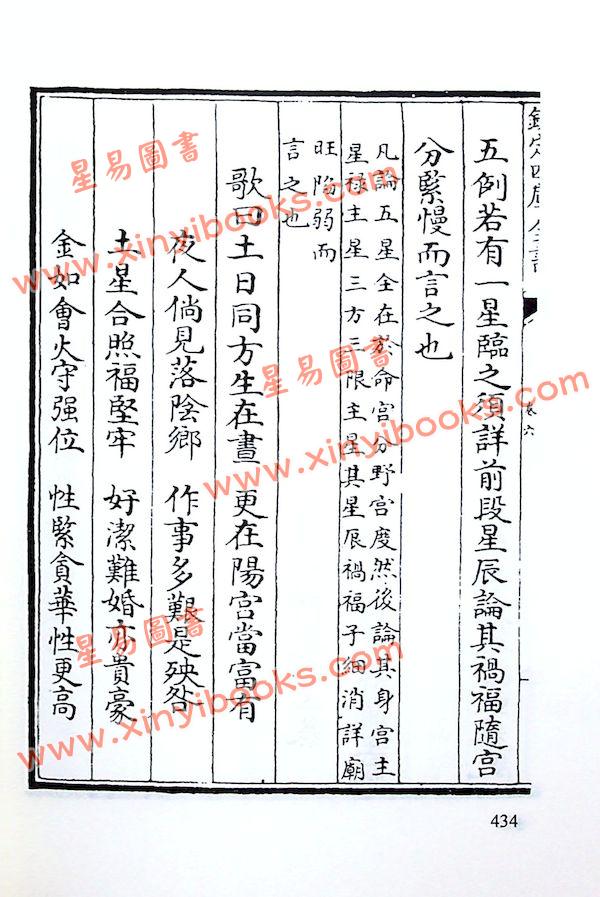 欽定四庫全書
卷六
五例若有一星臨之須詳前段星辰論其禍福隨宮
分緊慢而言之也
凡論五星全在於命宮分野宮度然後論其身宮主
星祿主星三方三限主星其星辰禍福子細消詳廟
旺陷弱而
言之也
歌曰土日同方生在晝 更在陽宮當富有
夜人倘見落陰鄉 作事多艱是殃咎
土星合照福堅牢 好潔難婚亦貴豪
金如會火守强位 性緊貪華性更高
434
星易圖書
www.xinyibooks.com
星易圖書
www.xinyibooks.com
星易圖書
www.xinyibooks.com